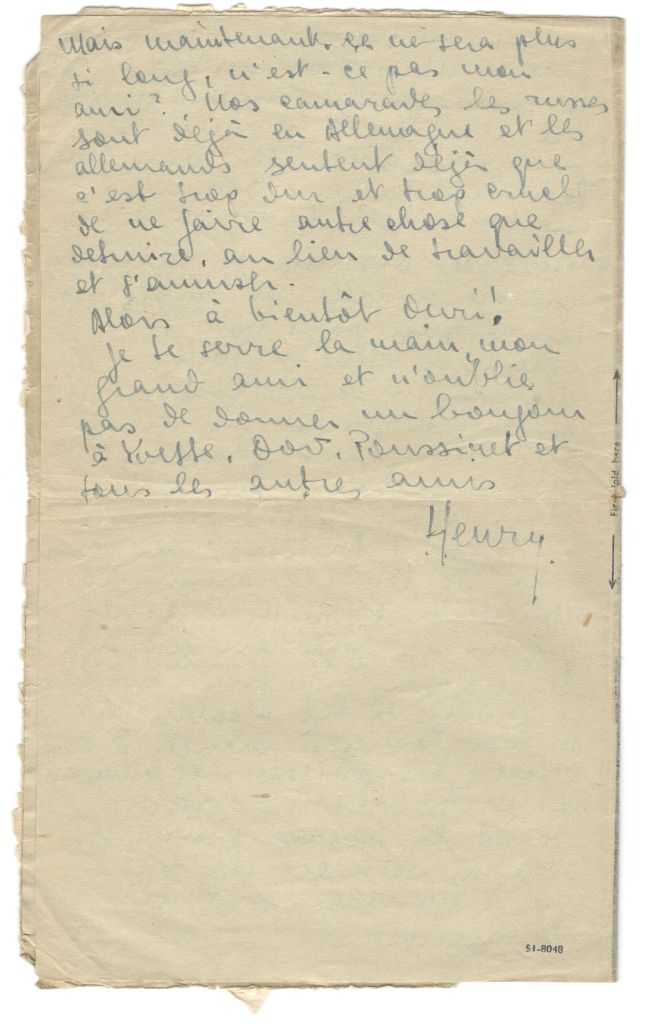 Mais maintenant. ça ne sera plus
si long, n'est-ce pas mon
ami? Nos camarades les russes
sont déjà en Allemagne et les
allemands sentent déjà que
c'est trop dur et trop cruel
de ne faire autre chose que
detruire, au lieu de travailler
et s'amuser.
Alors à bientôt Ouri!
Je te serre la main, mon
grand ami et n'oublie
pas de donner un bonjour
à Yvette, Dov, Poussinet et
tous les autres amis
Henry.
First fold here
51-8048